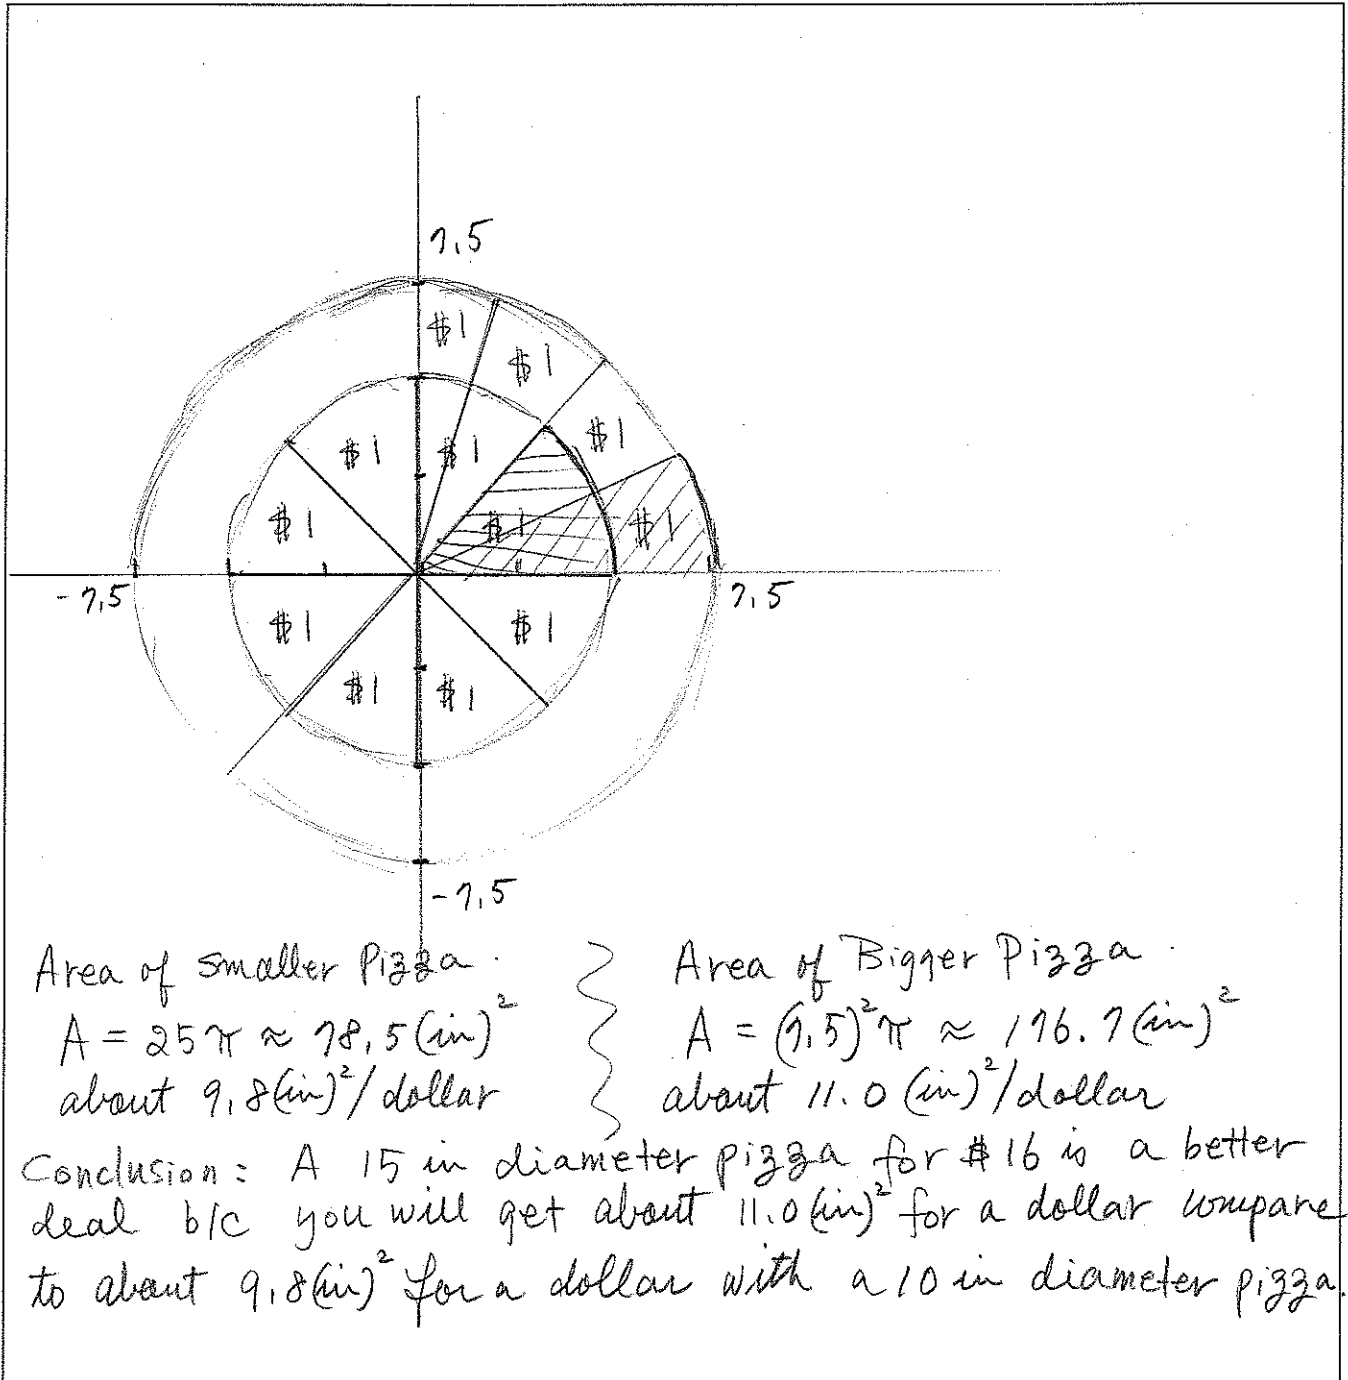 7.5
$1
$1
$1
$1
$1
$1
$1
$1
$1
-7.5
7.5
$1
$1
$1
$1
-7.5
Area of smaller Pizza.
A = 25π ≈ 78.5 (in)²
about 9.8 (in)²/dollar
Area of Bigger Pizza.
A = (7.5)²π ≈ 176.7 (in)²
about 11.0 (in)²/dollar
Conclusion: A 15 in diameter pizza for $16 is a better
deal b/c you will get about 11.0 (in)² for a dollar compare
to about 9.8 (in)² for a dollar with a 10 in diameter pizza.